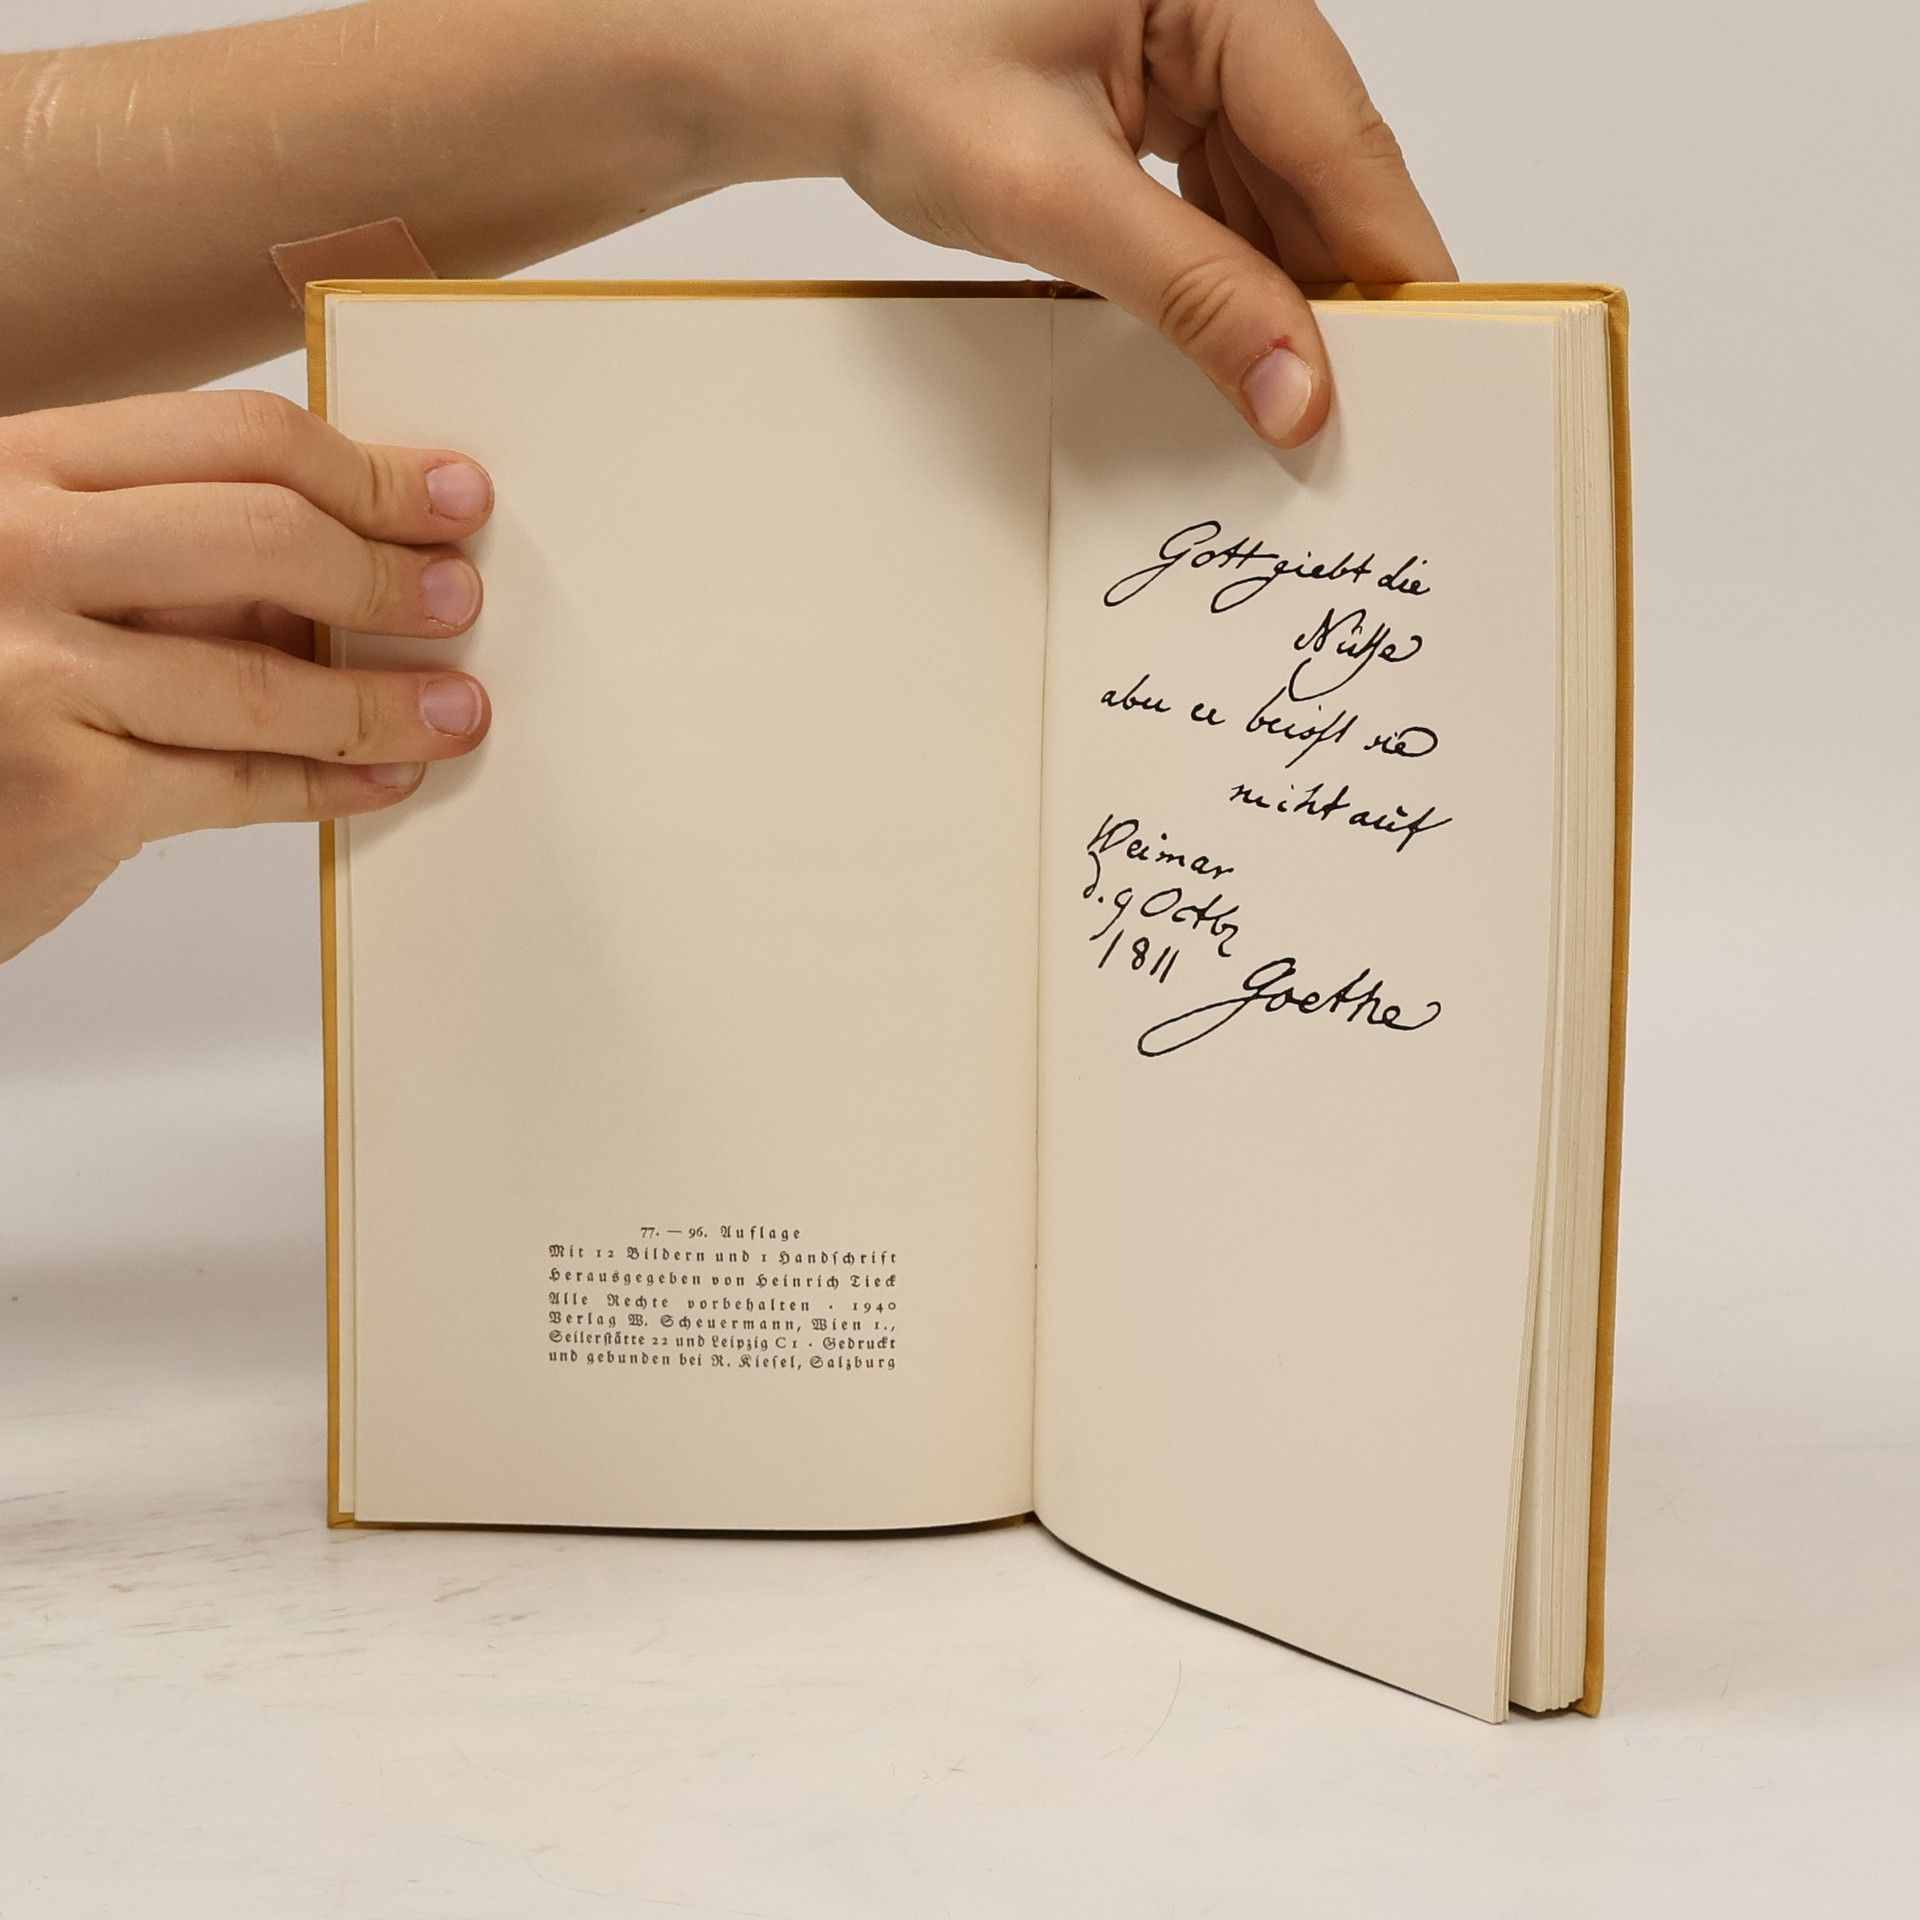 77. — 96. Auflage
Mit 12 Bildern und 1 Handſchrift
Herausgegeben von Heinrich Tieck
Alle Rechte vorbehalten · 1940
Verlag W. Scheuermann, Wien 1.,
Seilerſtätte 22 und Leipzig C1 · Gedruckt
und gebunden bei R. Kieſel, Salzburg
Gott giebt die
Nüſſe
aber er beiſſt sie
nicht auf
Weimar
d. 9 Octbr
1811
Goethe